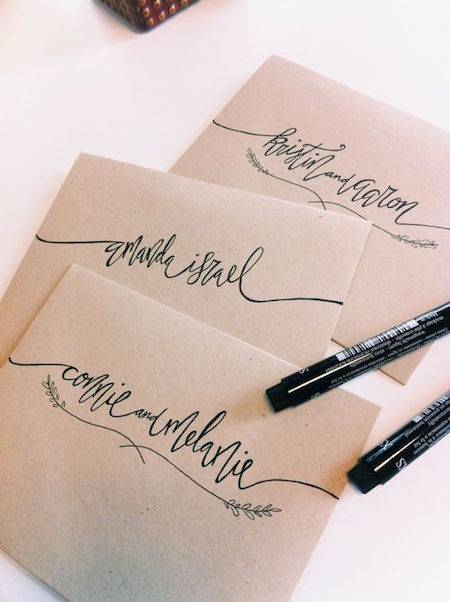 kristin and aaron
amanda israel
connie and melanie
S
S